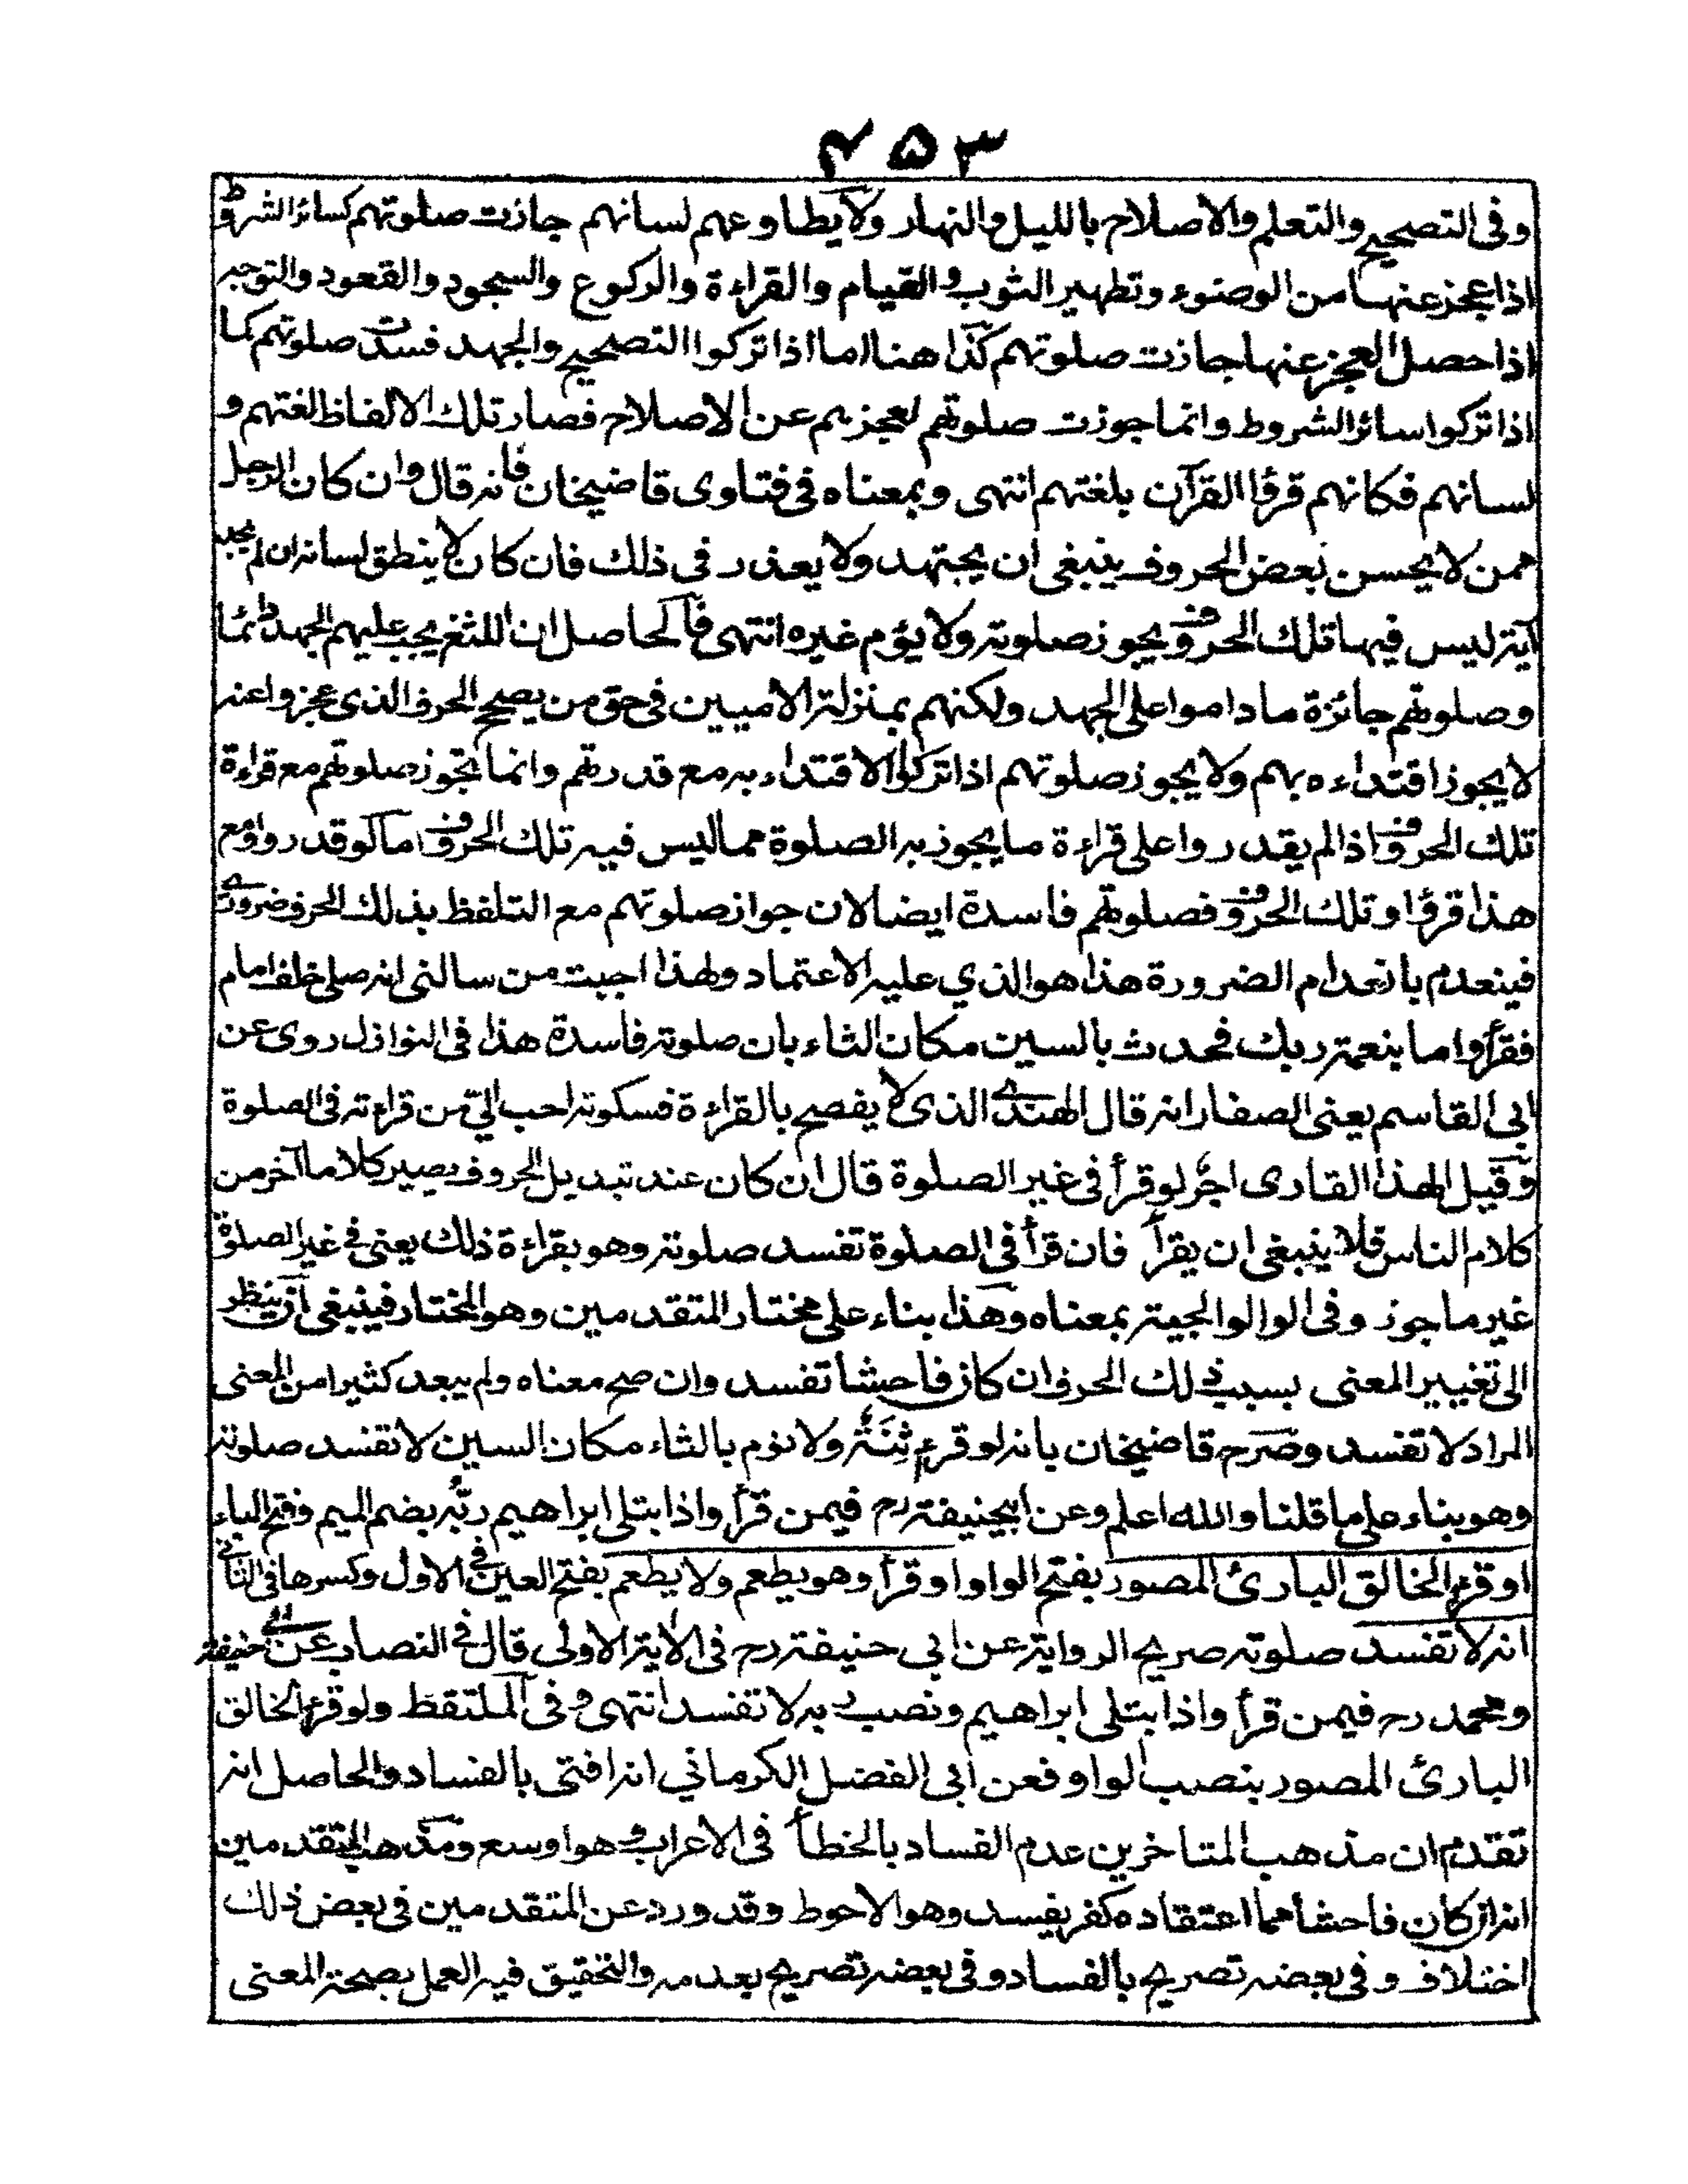 ۴۵۳
وفى التصحيح والتعلم والاصلاح بالليل والنهار ولا يطاوعهم لسانهم جازت صلوتهم كسائر الشروط
اذا عجز عنها من الوضوء وتطهير الثوب والقيام والقراءة والركوع والسجود والقعود والتوجه
اذا حصل العجز عنها جازت صلوتهم كذا هنا اما اذا تركوا التصحيح والجهد فسدت صلوتهم كما
اذا تركوا سائر الشروط وانما جوزت صلوتهم لعجزهم عن الاصلاح فصار تلك الالفاظ لغتهم و
لسانهم فكانهم قرؤا القرآن بلغتهم انتهى وبمعناه فى فتاوى قاضيخان فانه قال وان كان الرجل
ممن لا يحسن بعض الحروف ينبغى ان يجتهد ولا يعذر فى ذلك فان كان لا ينطق لسانه ان لم يجد
آية ليس فيها تلك الحروف يجوز صلوته ولا يؤم غيره انتهى فالحاصل ان اللثغ يجب عليهم الجهد دائما
وصلوتهم جائزة ما داموا على الجهد ولكنهم بمنزلة الاميين فى حق من يصحح الحرف الذى عجزوا عنه
لا يجوز اقتداءه بهم ولا يجوز صلوتهم اذا تركوا الاقتداء به مع قدرتهم وانما تجوز صلوتهم مع قراءة
تلك الحروف اذا لم يقدروا على قراءة ما يجوز به الصلوة مما ليس فيه تلك الحروف اما لو قدروا ومع
هذا قرؤا وتلك الحروف فصلوتهم فاسدة ايضا لان جواز صلوتهم مع التلفظ بذلك الحرف ضرورى
فينعدم بانعدام الضرورة هذا هو الذي عليه الاعتماد ولهذا اجبت من سالنى انه صلى خلف امام
فقرأ واما بنعمة ربك فحدث بالسين مكان الثاء بان صلوته فاسدة هذا فى النوازل روى عن
ابى القاسم يعنى الصفار انه قال الهندى الذى لا يفصح بالقراءة فسكوته احب الي من قراءته فى الصلوة
وقيل لهذا القارى اجر لو قرأ فى غير الصلوة قال ان كان عند تبديل الحروف يصير كلاما آخر من
كلام الناس فلا ينبغى ان يقرأ فان قرأ فى الصلوة تفسد صلوته وهو بقراءة ذلك يعنى فى غير الصلوة
غير ماجوز وفى الوالوالجية بمعناه وهذا بناء على مختار المتقدمين وهو المختار فينبغى ان ينظر
الى تغيير المعنى بسبب ذلك الحرف ان كان فاحشا تفسد وان صح معناه ولم يبعد كثيرا من المعنى
المراد لا تفسد وصرح قاضيخان بانه لو قرئ ثِنَةٌ ولا نوم بالثاء مكان السين لا تفسد صلوته
وهو بناء على ما قلنا والله اعلم وعن ابيحنيفة رح فيمن قرأ واذا بتلى ابراهيم ربُّه بضم الميم وفتح الباء
او قرئ الخالق البارئ المصور بفتح الواو او قرأ وهو يطعم ولا يطعم بفتح العين فى الاول وكسرها فى الثانى
انه لا تفسد صلوته صريح الرواية عن ابى حنيفة رح فى الآية الاولى قال فى النصاب عن ابى حنيفة
ومحمد رح فيمن قرأ واذا بتلى ابراهيم ونصب ربه لا تفسد انتهى وفى الملتقط ولو قرئ الخالق
البارئ المصور بنصب الواو فعن ابى الفضل الكرماني انه افتى بالفساد والحاصل انه
تقدم ان مذهب المتاخرين عدم الفساد بالخطأ فى الاعراب وهو اوسع ومذهب المتقدمين
انه ان كان فاحشا مما اعتقاده كفر يفسد وهو الاحوط وقد ورد عن المتقدمين فى بعض ذلك
اختلاف وفى بعضه تصريح بالفساد وفى بعضه تصريح بعدمه والتحقيق فيه العمل بصحة المعنى